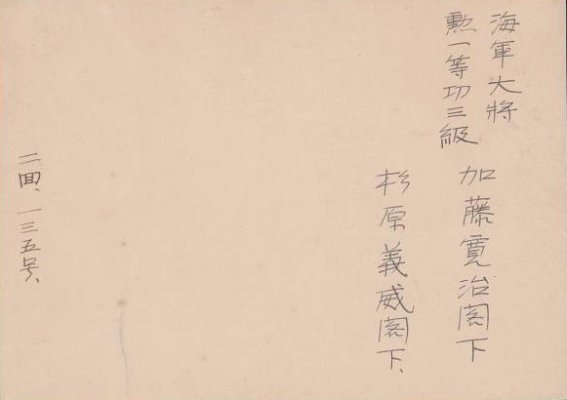 海軍大將
勲一等功三級
加藤寛治閣下
杉原義威閣下、
二回、一三五号、